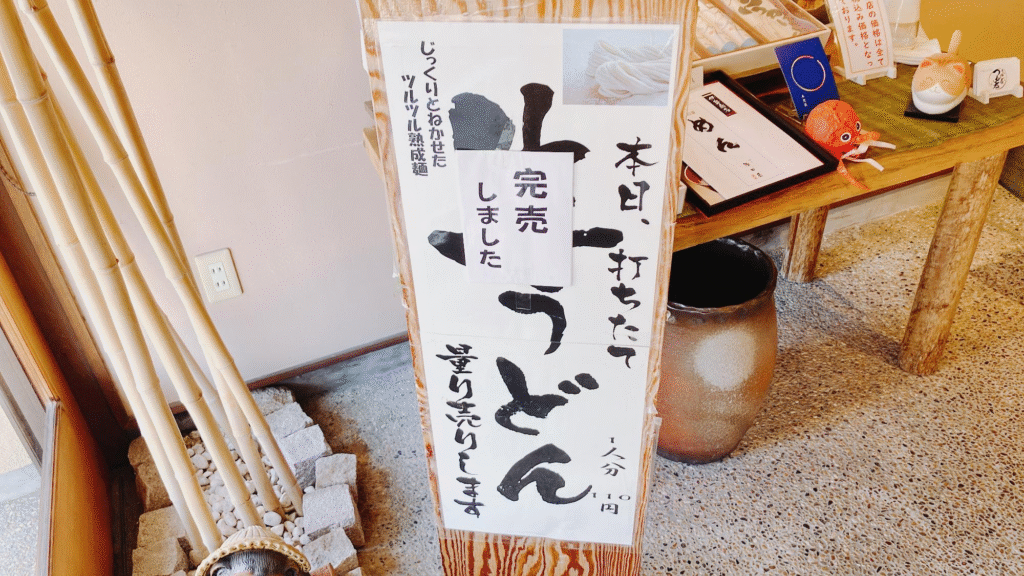 本日、打ちたて
うどん
完売
しました
じっくりとねかせた
ツルツル熟成麺
量り売りします
1人分
110円
店の価格は全て
込み価格となっ
ております。